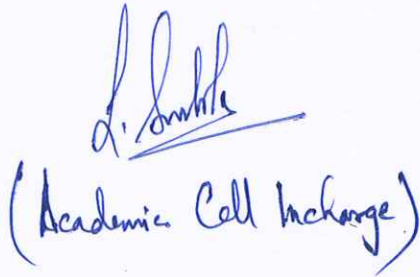 (Academic Cell Incharge)